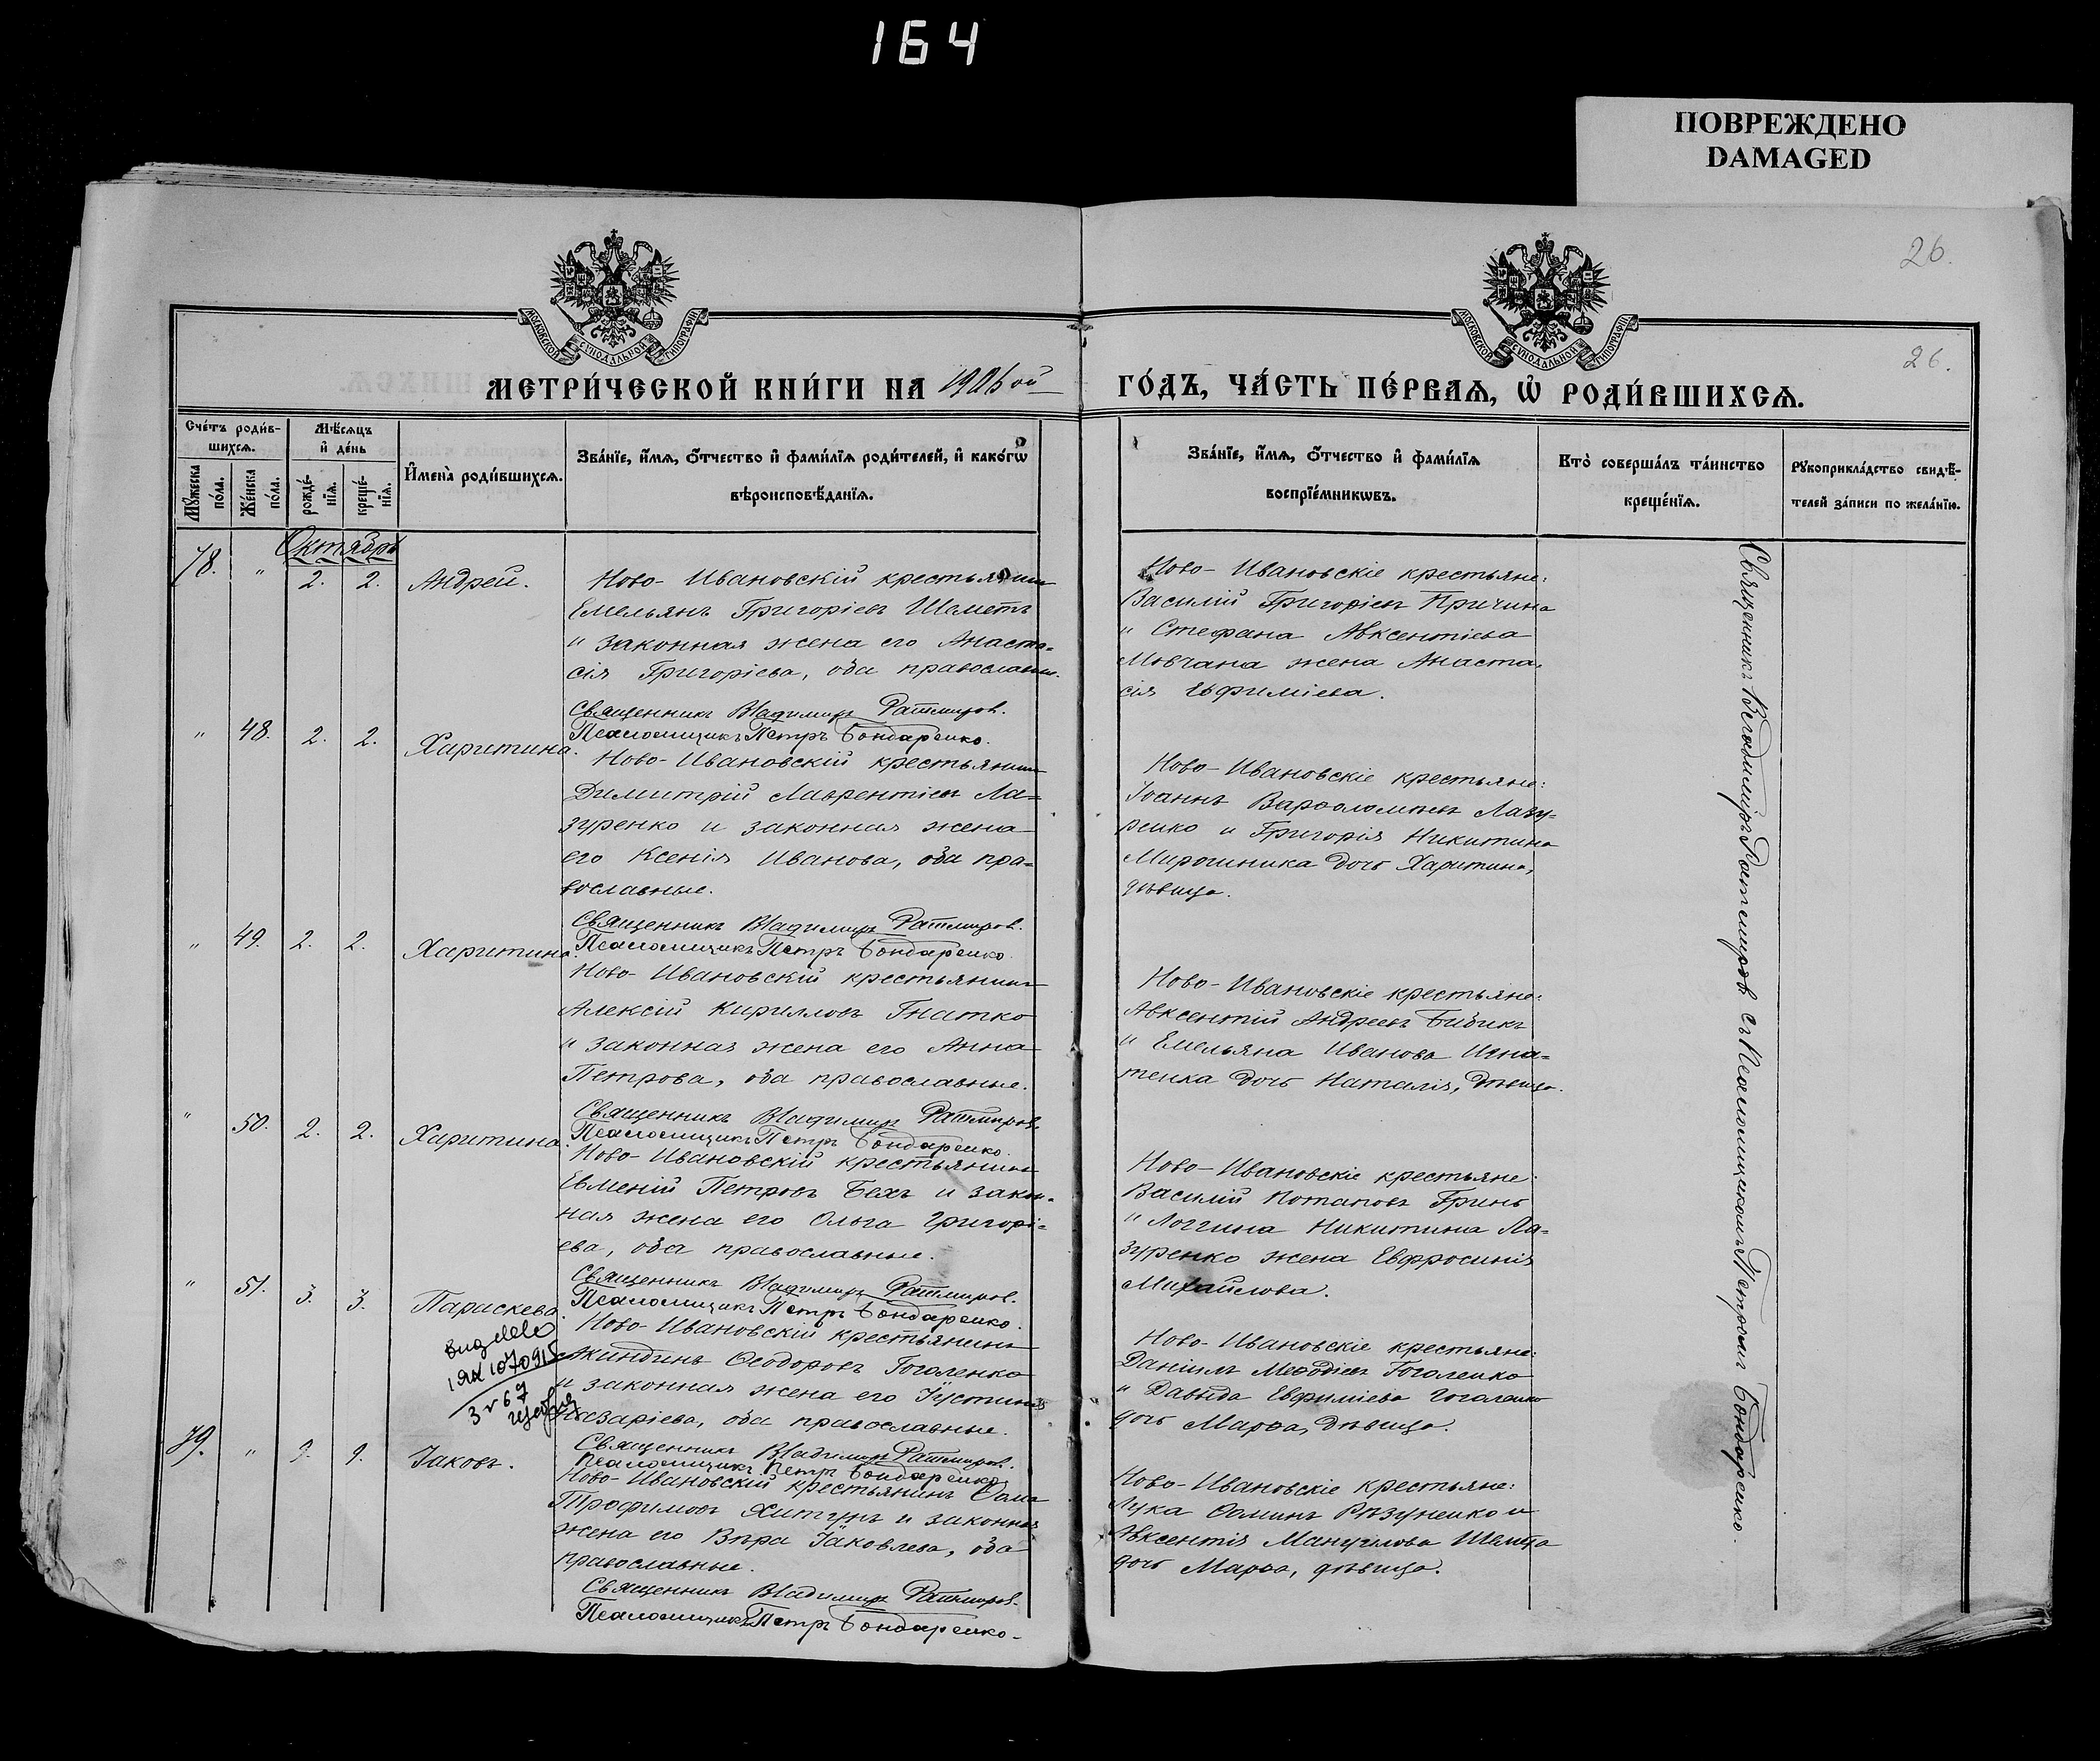 164
ПОВРЕЖДЕНО
DAMAGED
26.
26.
МОСКОВСКОЙ СѴНОДАЛЬНОЙ ТИПОГРАФІИ
МОСКОВСКОЙ СѴНОДАЛЬНОЙ ТИПОГРАФІИ
МЕТРИ́ЧЕСКОЙ КНИ́ГИ НА
ГО́ДЪ, ЧА́СТЬ ПЕ́РВАЯ, Ѡ҆ РОДИ́ВШИХСЯ.
Сче́тъ роди́в-
шихся.
Мѣ́сяцъ
и҆ де́нь
Мꙋ́жеска
по́ла.
Же́нска
по́ла.
рожде́-
нїя.
креще́-
нїя.
И҆мена̀ роди́вшихся.
Зва́нїе, и҆́мя, ѻ҆́тчество и҆ фами́лїя роди́телей, и҆ како́гѡ
вѣроисповѣ́данїя.
Зва́нїе, и҆́мя, ѻ҆́тчество и҆ фами́лїя
воспрїе́мникѡвъ.
Кто̀ соверша́лъ та́инство
креще́нїя.
Рꙋкоприкла́дство свидѣ́-
телей за́писи по жела́нїю.
Октябрь
78. " 2. 2. Андрей.
Ново-Ивановскій крестьянинъ
Емельянъ Григоріевъ Шаметъ
и законная жена его Анаста=
сія Григоріева, оба православн.
Священникъ Владимиръ Ратмиров.
Псаломщикъ Петръ Бондаренко.
Ново-Ивановскіе крестьяне:
Василій Григоріевъ Причина
и Стефана Авксентіева
Мовчана жена Анаста-
сія Евфиміева.
" 48. 2. 2. Харитина.
Ново-Ивановскій крестьянинъ
Димитрій Лаврентіевъ Ла=
зуренко и законная жена
его Ксенія Иванова, оба пра=
вославные.
Священникъ Владимиръ Ратмиров.
Псаломщикъ Петръ Бондаренко.
Ново-Ивановскіе крестьяне:
Іоаннъ Варѳоломѣевъ Лазу=
ренко и Григорія Никитина
Мирошника дочь Харитина,
дѣвица.
" 49. 2. 2. Харитина.
Ново-Ивановскій крестьянинъ
Алексій Кирилловъ Гнатко
и законная жена его Анна
Петрова, оба православные.
Священникъ Владимиръ Ратмиров.
Псаломщикъ Петръ Бондаренко.
Ново-Ивановскіе крестьяне:
Авксентій Андреевъ Бибикъ
и Емельяна Иванова Игна=
тенка дочь Наталія, дѣвица.
" 50. 2. 2. Харитина.
Ново-Ивановскій крестьянинъ
Евменій Петровъ Бехъ и закон-
ная жена его Ольга Григорі=
ева, оба православные.
Священникъ Владимиръ Ратмиров.
Псаломщикъ Петръ Бондаренко.
Ново-Ивановскіе крестьяне:
Василій Потаповъ Гринь
и Логгина Никитина Ла=
зуренко жена Евфросинія
Михайлова.
" 51. 3. 3. Параскева.
1070915
Ново-Ивановскій крестьянинъ
Акиндинъ Ѳеодоровъ Гоголенко
и законная жена его Іустина
Назаріева, оба православные.
Священникъ Владимиръ Ратмиров.
Псаломщикъ Петръ Бондаренко.
Ново-Ивановскіе крестьяне:
Даніилъ Меѳодіевъ Гоголенко
и Давида Евфиміева Гоголенко
дочь Марѳа, дѣвица.
79. " 9. 9. Іаковъ.
Ново-Ивановскій крестьянинъ Ѳома
Трофимовъ Хитунъ и законная
жена его Вѣра Іаковлева, оба
православные.
Священникъ Владимиръ Ратмиров.
Псаломщикъ Петръ Бондаренко.
Ново-Ивановскіе крестьяне:
Лука Ѳоминъ Рѣзуненко и
Авксентія Мануилова Шамета
дочь Марѳа, дѣвица.
Священникъ Владимиръ Ратмировъ съ Псаломщикомъ Петромъ Бондаренко.